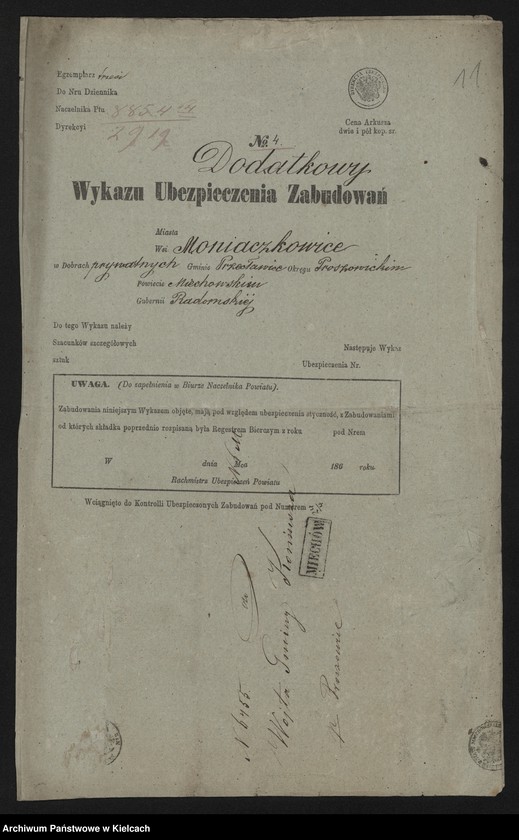 11
Egzemplarz trzeci
Do Nru Dziennika
Naczelnika Ptu 8854
Dyrekcyi 2919
Cena Arkusza
dwie i pół kop. sr.
No 4.
Dodatkowy
Wykazu Ubezpieczenia Zabudowań
Miasta
Wsi Moniaczkowice
w Dobrach prywatnych Gminie Przesławice Okręgu Proszowickim
Powiecie Miechowskim
Gubernii Radomskiej
Do tego Wykazu należy
Szacunków szczegółowych
sztuk
Następuje Wykaz
Ubezpieczenia Nr.
UWAGA. (Do zapełnienia w Biurze Naczelnika Powiatu).
Zabudowania niniejszym Wykazem objęte, mają pod względem ubezpieczenia styczność, z Zabudowaniami
od których składka poprzednio rozpisaną była Rejestrem Bierczym z roku pod Nrem
W dnia 186 roku
Rachmistrz Ubezpieczeń Powiatu
Wciągnięto do Kontrolli Ubezpieczonych Zabudowań pod Numerem
MIECHÓW
N 6455
Do
Wójta Gminy
p Proszowice
Archiwum Państwowe w Kielcach